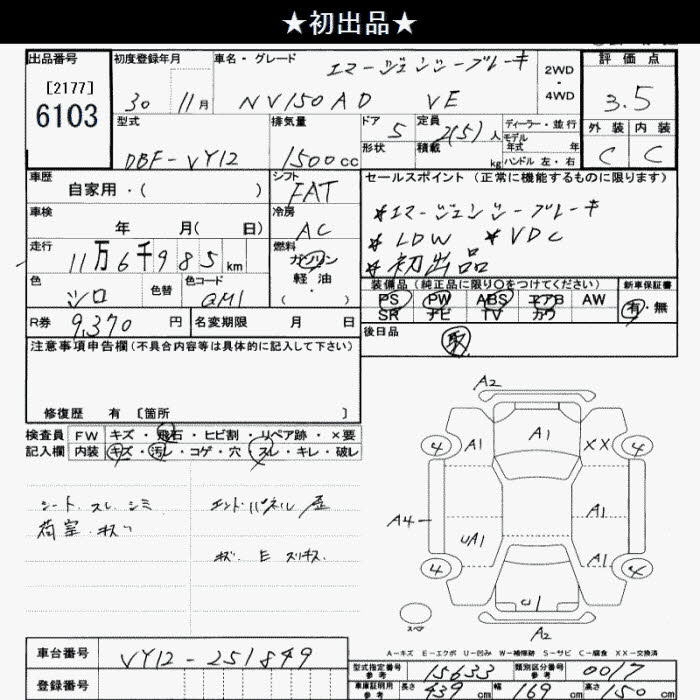 ★初出品★
出品番号
[2177]
6103
初度登録年月
30 11月
車名・グレード
エマージェンシーブレーキ
NV150AD VE
2WD
・
4WD
評価点
3.5
外装 内装
C C
型式
DBF-VY12
排気量
1500cc
ドア 5
形状
定員 2(5)人
積載 kg
ディーラー・並行
モデル
年式 年
ハンドル 左・右
車歴
自家用・( )
シフト
FAT
車検
年 月( 日)
冷房
AC
走行
11万6千985km
燃料
ガソリン
軽油
色
シロ
色替
色コード
QM1
R券 9,370 円
名変期限 月 日
セールスポイント(正常に機能するものに限ります)
*エマージェンシーブレーキ
*LDW *VDC
*初出品
装備品(純正品に限り○をつけてください)
PS PW ABS エアB AW
SR ナビ TV カワ
新車保証書
有・無
後日品
取
注意事項申告欄(不具合内容等は具体的に記入して下さい)
修復歴 有 [箇所 ]
検査員
記入欄
FW キズ・飛石・ヒビ割・リペア跡・×要
内装 キズ・汚レ・コゲ・穴・スレ・キレ・破レ
シート スレ シミ
荷室 キズ
エンドパネル
キズ E スリキズ
A2
4 A1 A1 XX 4
A4 A1
UA1 A1
4 4
U1
スペア
A2
A-キズ E-エクボ U-凹み W-補修跡 S-サビ C-腐食 XX-交換済
車台番号
VY12-251849
登録番号
型式指定番号
参考
15633
類別区分番号
参考
0017
車庫証明用
参考
長さ 439cm 幅 169cm 高さ 150cm